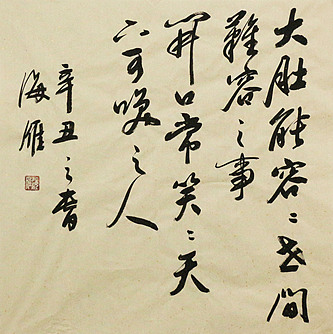 大肚能容〻世間
難容之事
開口常笑〻天
下可咲之人
辛丑之春
海雁